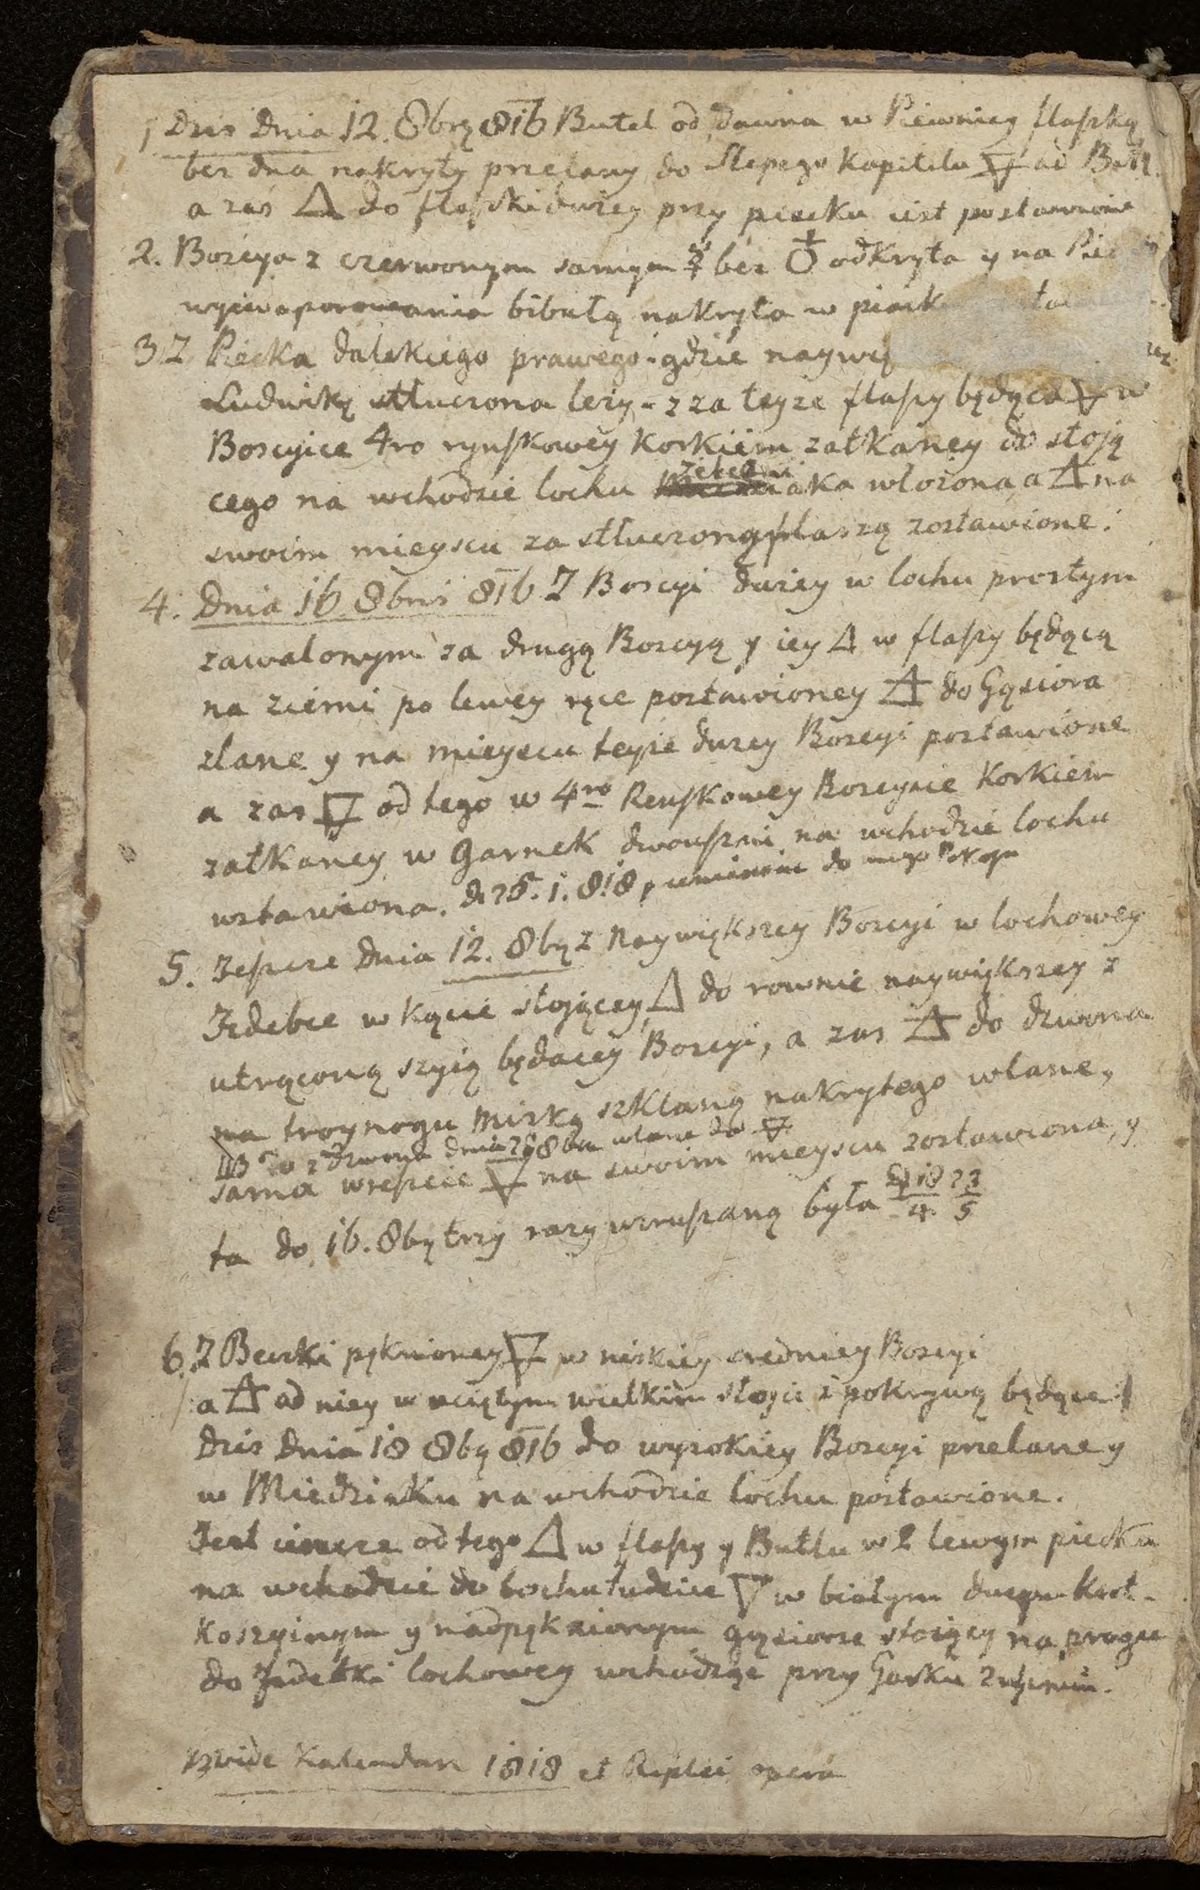 1 Dzis Dnia 12. 8brą 816 Butel od dawna w Piewnicy flaszką
bez dna nakryty przelany do Slepego Kapitelu 🜃 ad Butl.
a zas 🜂 do flaszki dużey przy piecku iest postawione
2. Boscya z czerwonym samym ☿ bez ♁ odkryta y na Pie
wyewaporowania bibułą nakryta w pieck
3. Z Piecka dalekiego prawego gdzie naywę
Ludwiką stłuczona leży - z za teyże flaszy będąca 🜃 w
Boscyice 4ro ryńskowey Korkiem zatkaney do stoją
cego na wchodzie lochu żelazniaka włożona a 🜁 na
swoim mieyscu za stłuczoną flaszą zostawione.
4. Dnia 16 8bris 816 Z Boscyi dużey w lochu prostym
zawalonym za drugą Boscyą y iey 🜂 w flaszy będącą
na ziemi po lewey ręce postawioney 🜁 do Gąsiora
zlane y na mieyscu teyże dużey Boscyi postawione
a zas 🜃 od tego w 4ro Reńskowey Boscyice Korkiem
zatkaney w Garnek dwouszni na wchodzie lochu
wstawiona. d. 25. 1. 818 do mego Pokoju
5. Jeszcze Dnia 12. 8bą z Naywiększey Boscyi w lochowey
Izdebce w Kącie stojącey 🜂 do rownie naywiększey z
utrąconą szyią będacey Boscyi, a zas 🜁 do dzwona
na troynogu Miską szklaną nakrytego wlane,
NB To z dzwona dnia 26 8bra wlane do 🜃
sama wreszcie 🜃 na swoim mieyscu zostawiona, y
ta do 16. 8bą trzy razy wzruszaną była 18/4 23/5
6. Z Beczki pęknioney 🜃 w niskiey sredniey Boscyi
a 🜁 od niey w uciętym wielkim słoju z pokrywą będące
dzis Dnia 18 8bą 816 do wysokiey Boscyi przelane y
w Miedziaku na wchodzie lochu postawione.
Jest ieszcze od tego 🜂 w flaszy y Butlu w 2 lewym piecku
na wchodzie do lochu tudzież 🜃 w białym dużym Krot-
Koszyinym y nadpęknionym gąsiorze stoiący na progu
do Izdebki lochowey wchodząc przy Garku
NB vide Kalendarz 1818 et Riplei opera